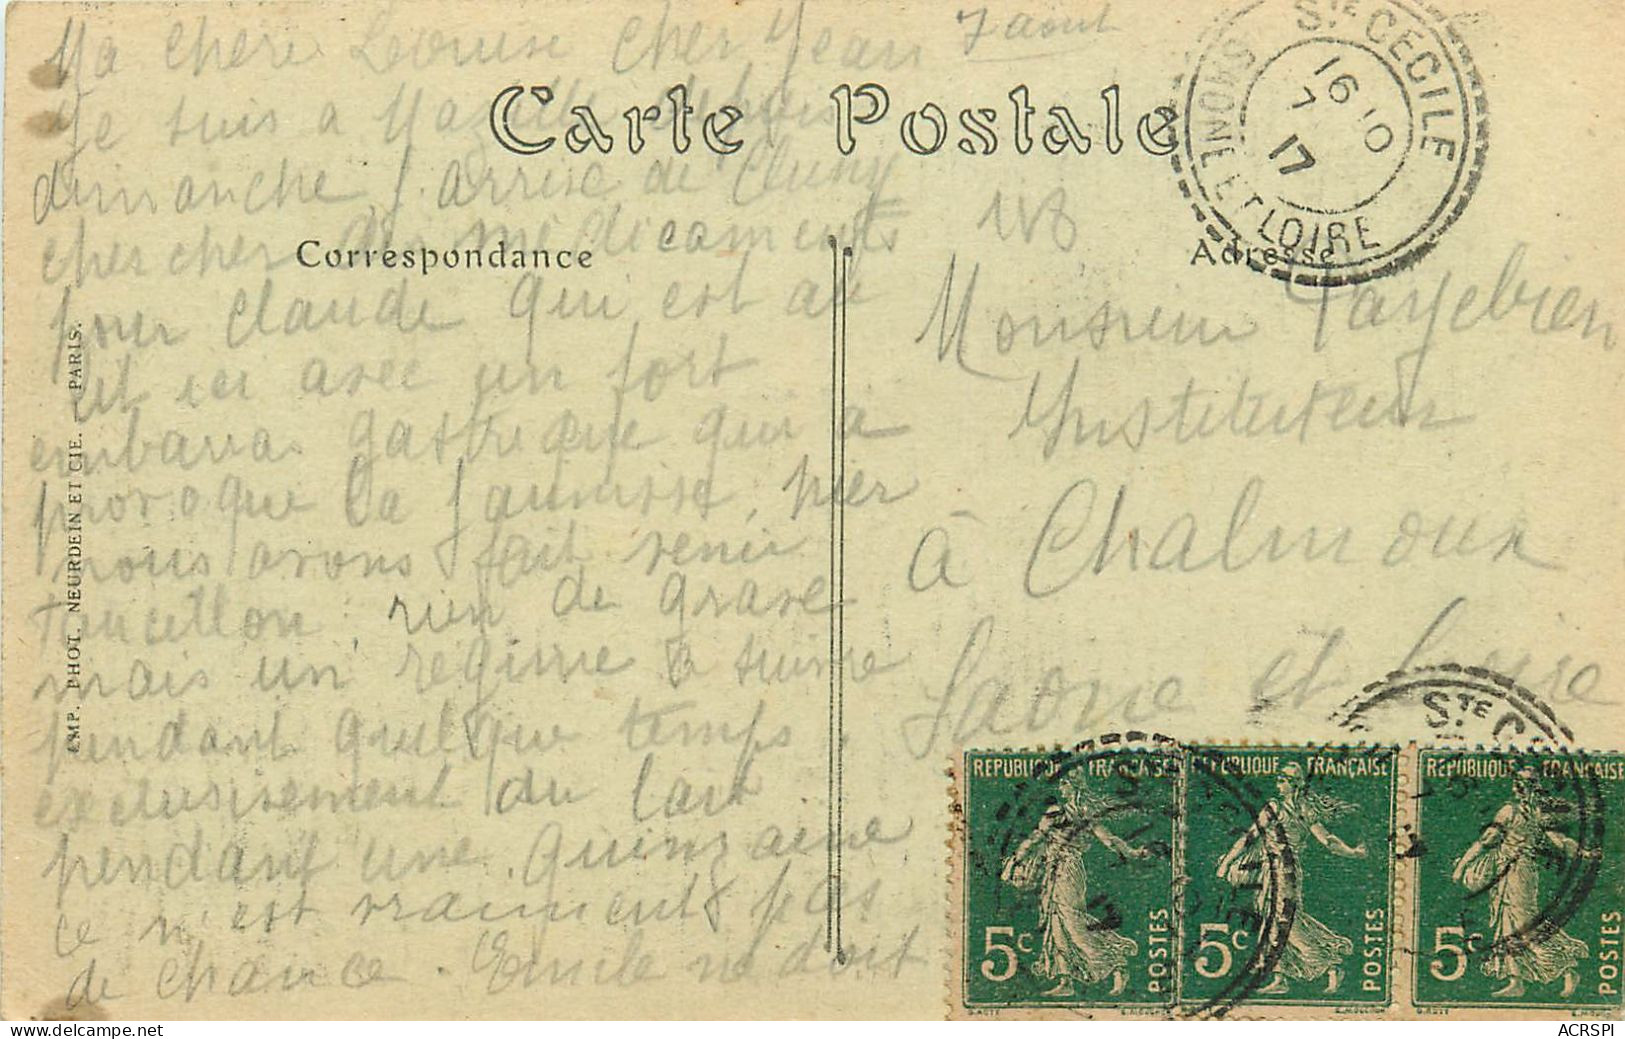 Ma chère Louise cher Jean 7 aout
Carte Postale
Je suis a Mazille depuis
dimanche, j'arrive de Cluny
chercher des médicaments
Correspondance
pour Claude qui est au
lit ici avec un fort
embarras gastrique qui a
provoque la jaunisse, hier
nous avons fait venir
rien de grave
mais un regime a suivre
pendant quelque temps,
exclusivement du lait
pendant une quinzaine
ce n'est vraiment pas
de chance. Emile ne doit
IMP. PHOT. NEURDEIN ET CIE. _ PARIS.
STE CECILE
16 10
7
17
SAONE ET LOIRE
Adresse
Monsieur Payebien
Instituteur
à Chalmoux
Saone et Loire
REPUBLIQUE FRANÇAISE
5c
POSTES
REPUBLIQUE FRANÇAISE
5c
POSTES
REPUBLIQUE FRANÇAISE
5c
POSTES
STE CECILE
ACRSPI